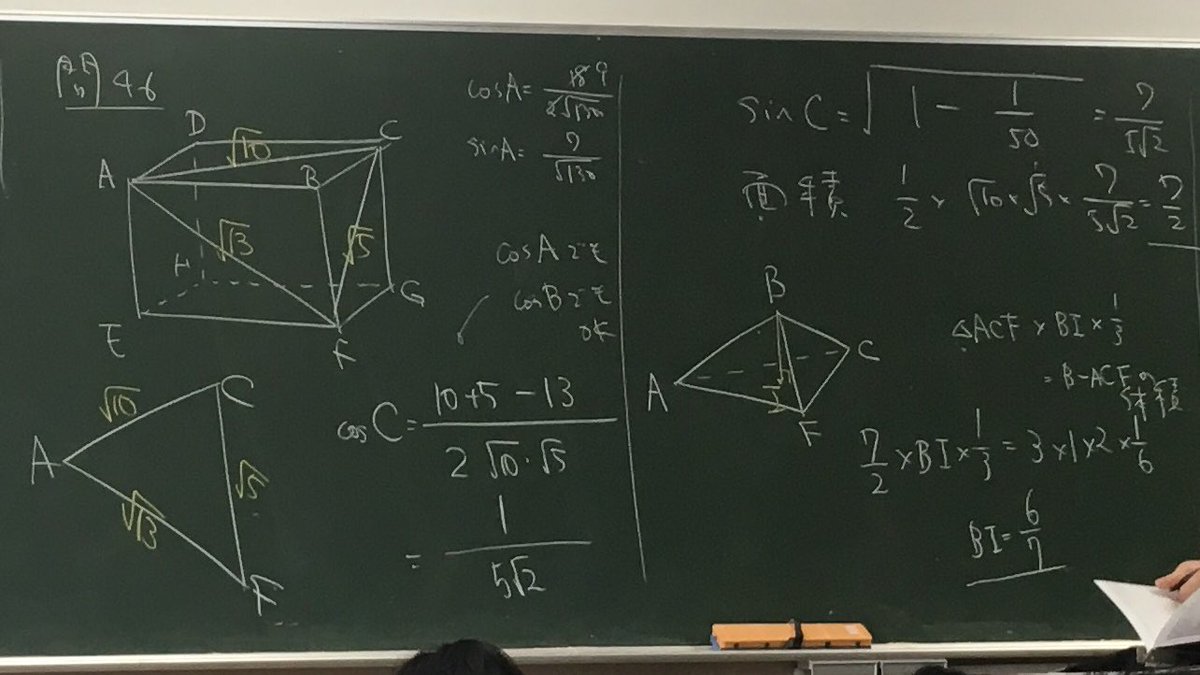 46
D
C
A
B
√10
√13
√5
H
G
E
F
A
C
F
√10
√5
√13
cosA= 18 9 / 2√130
sinA= 7/√130
cosAでも
cosBでも
OK
cosC= 10+5-13 / 2√10・√5
= 1/5√2
sinC=√(1 - 1/50) = 7/5√2
面積 1/2 × √10 × √5 × 7/5√2 = 7/2
B
A
C
F
I
△ACF × BI × 1/3
= B-ACFの
体積
7/2 × BI × 1/3 = 3×1×2× 1/6
BI= 6/7